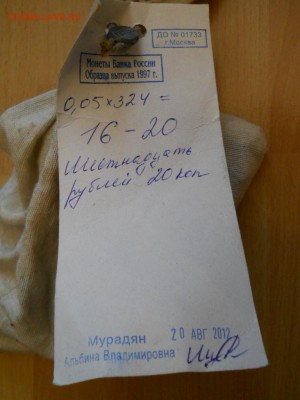 ДО № 01733
г.Москва
Монеты Банка России
Образца выпуска 1997 г.
0,05 х 324 =
16 - 20
Шестнадцать
рублей 20 коп
Мурадян
20 АВГ 2012
Альбина Владимировна